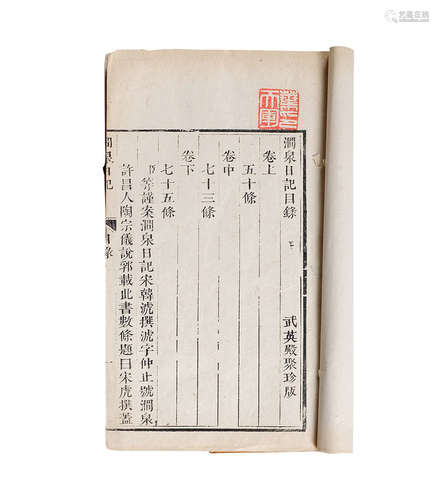 澗泉日記目錄
武英殿聚珍版
卷上
五十條
卷中
七十三條
卷下
七十五條
等謹案澗泉日記宋韓淲撰淲字仲止號澗泉
許昌人陶宗儀說郛載此書數條題曰宋虎撰蓋
澗泉日記
目錄